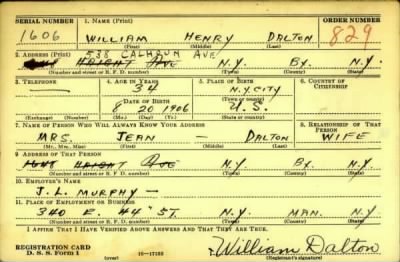 SERIAL NUMBER 1. NAME (Print) ORDER NUMBER
1606 WILLIAM HENRY DALTON 829
(First) (Middle) (Last)
538 CALHOUN AVE
2. ADDRESS (Print)
1648 HRIGHT AVE N.Y. BX. N.Y.
(Number and street or R. F. D. number) (Town) (County) (State)
3. TELEPHONE 4. AGE IN YEARS 5. PLACE OF BIRTH 6. COUNTRY OF CITIZENSHIP
— 34 N.Y.CITY
(Town or county)
DATE OF BIRTH
8 20 1906 U.S.
(Exchange) (Number) (Mo.) (Day) (Yr.) (State or country)
7. NAME OF PERSON WHO WILL ALWAYS KNOW YOUR ADDRESS 8. RELATIONSHIP OF THAT PERSON
MRS. JEAN — DALTON WIFE
(Mr., Mrs., Miss) (First) (Middle) (Last)
9. ADDRESS OF THAT PERSON
1648 HRIGHT AVE N.Y. BX. N.Y.
(Number and street or R. F. D. number) (Town) (County) (State)
10. EMPLOYER'S NAME
J.L. MURPHY —
11. PLACE OF EMPLOYMENT OR BUSINESS
340 E. 44 ST. N.Y. MAN. N.Y.
(Number and street or R. F. D. number) (Town) (County) (State)
I AFFIRM THAT I HAVE VERIFIED ABOVE ANSWERS AND THAT THEY ARE TRUE.
REGISTRATION CARD
D. S. S. Form 1 (over) 16—17105 William Dalton
(Registrant's signature)